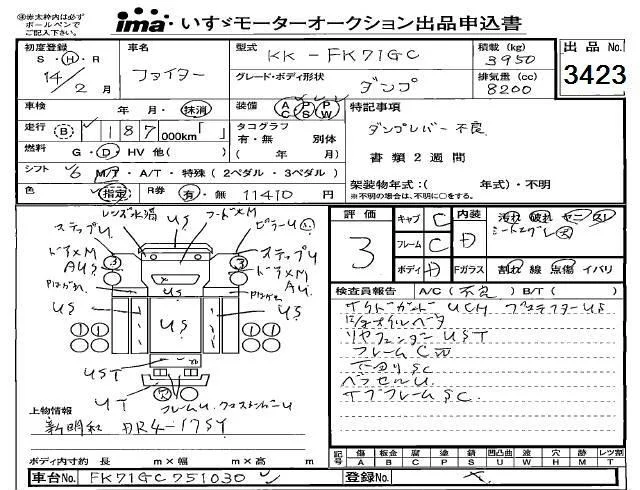 ㊟赤太枠内は必ず
ボールペンで
ご記入下さい。
ima いすゞモーターオークション出品申込書
初度登録 車名 型式 KK-FK71GC 積載 (kg) 3950 出品No.
S・H・R 14/2月 ファイター グレード・ボディ形状 ダンプ 排気量 (cc) 8200 3423
車検 年・月・抹消 装備 AC PS PW 特記事項
走行 B 187,000km「 」 タコグラフ 有・無 別体 ダンプレバー不良
燃料 G・D・HV 他( ) ( 年 月) 書類2週間
シフト 6 M/T・A/T・特殊 (2ペダル・3ペダル)
色 指定 R券 有・無 11410円 架装物年式:( 年式)・不明
※不明の場合は、不明に○をする。
評価 3 キャブ C 内装 D 汚れ 破れ ヤニ スレ
フレーム C
ボディ D Fガラス 割れ 線 点傷 イバリ
レンズ水滴 US フードXM
ステップU ステップU
ドアXM ドアXM
AU 3 3 AU
US US US US
1 1 1 1
UST US
UT フレームU
検査員報告 A/C (不良) B/T ( )
サイドガード UCH
リヤフェンダー UST
フレーム C
下回りSC
サブフレームSC
上物情報
新明和 DR4-17SY
ボディ内寸約 長 m×幅 m×高 m
記号 傷 板金 腐 塗 錆 凹凸曲 波 穴 跡 レツ割
A B C P S U W H M T
車台No. FK71GC 751030 登録No.